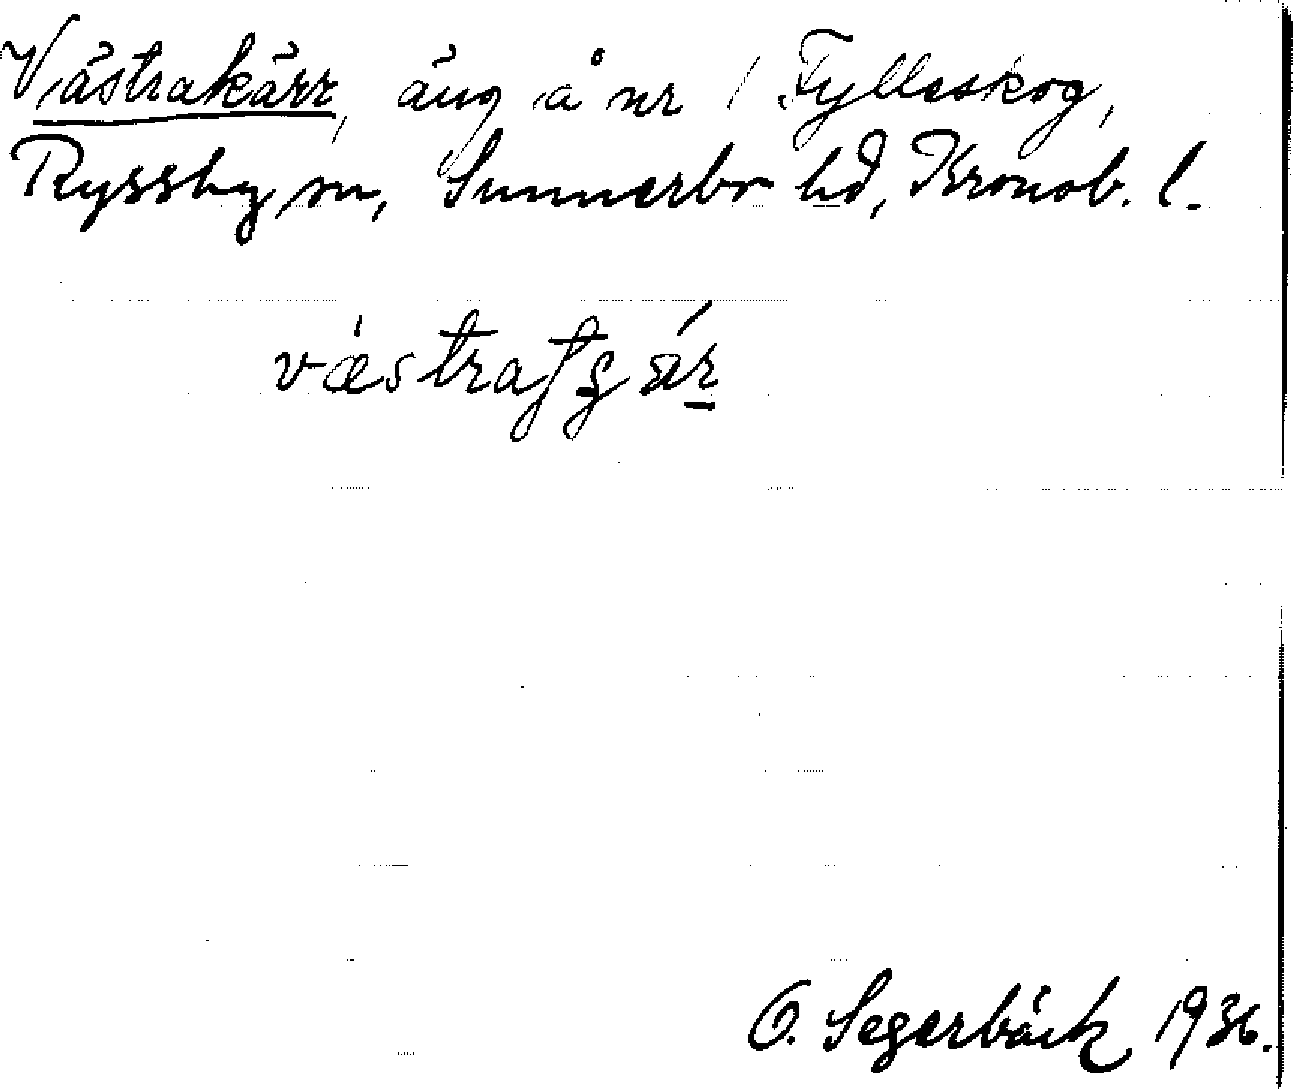 Västrakärr, äng å nr 1 Fylleskog,
Ryssby sn, Sunnerbo hd, Kronob. l.
O. Segerbäck 1936.